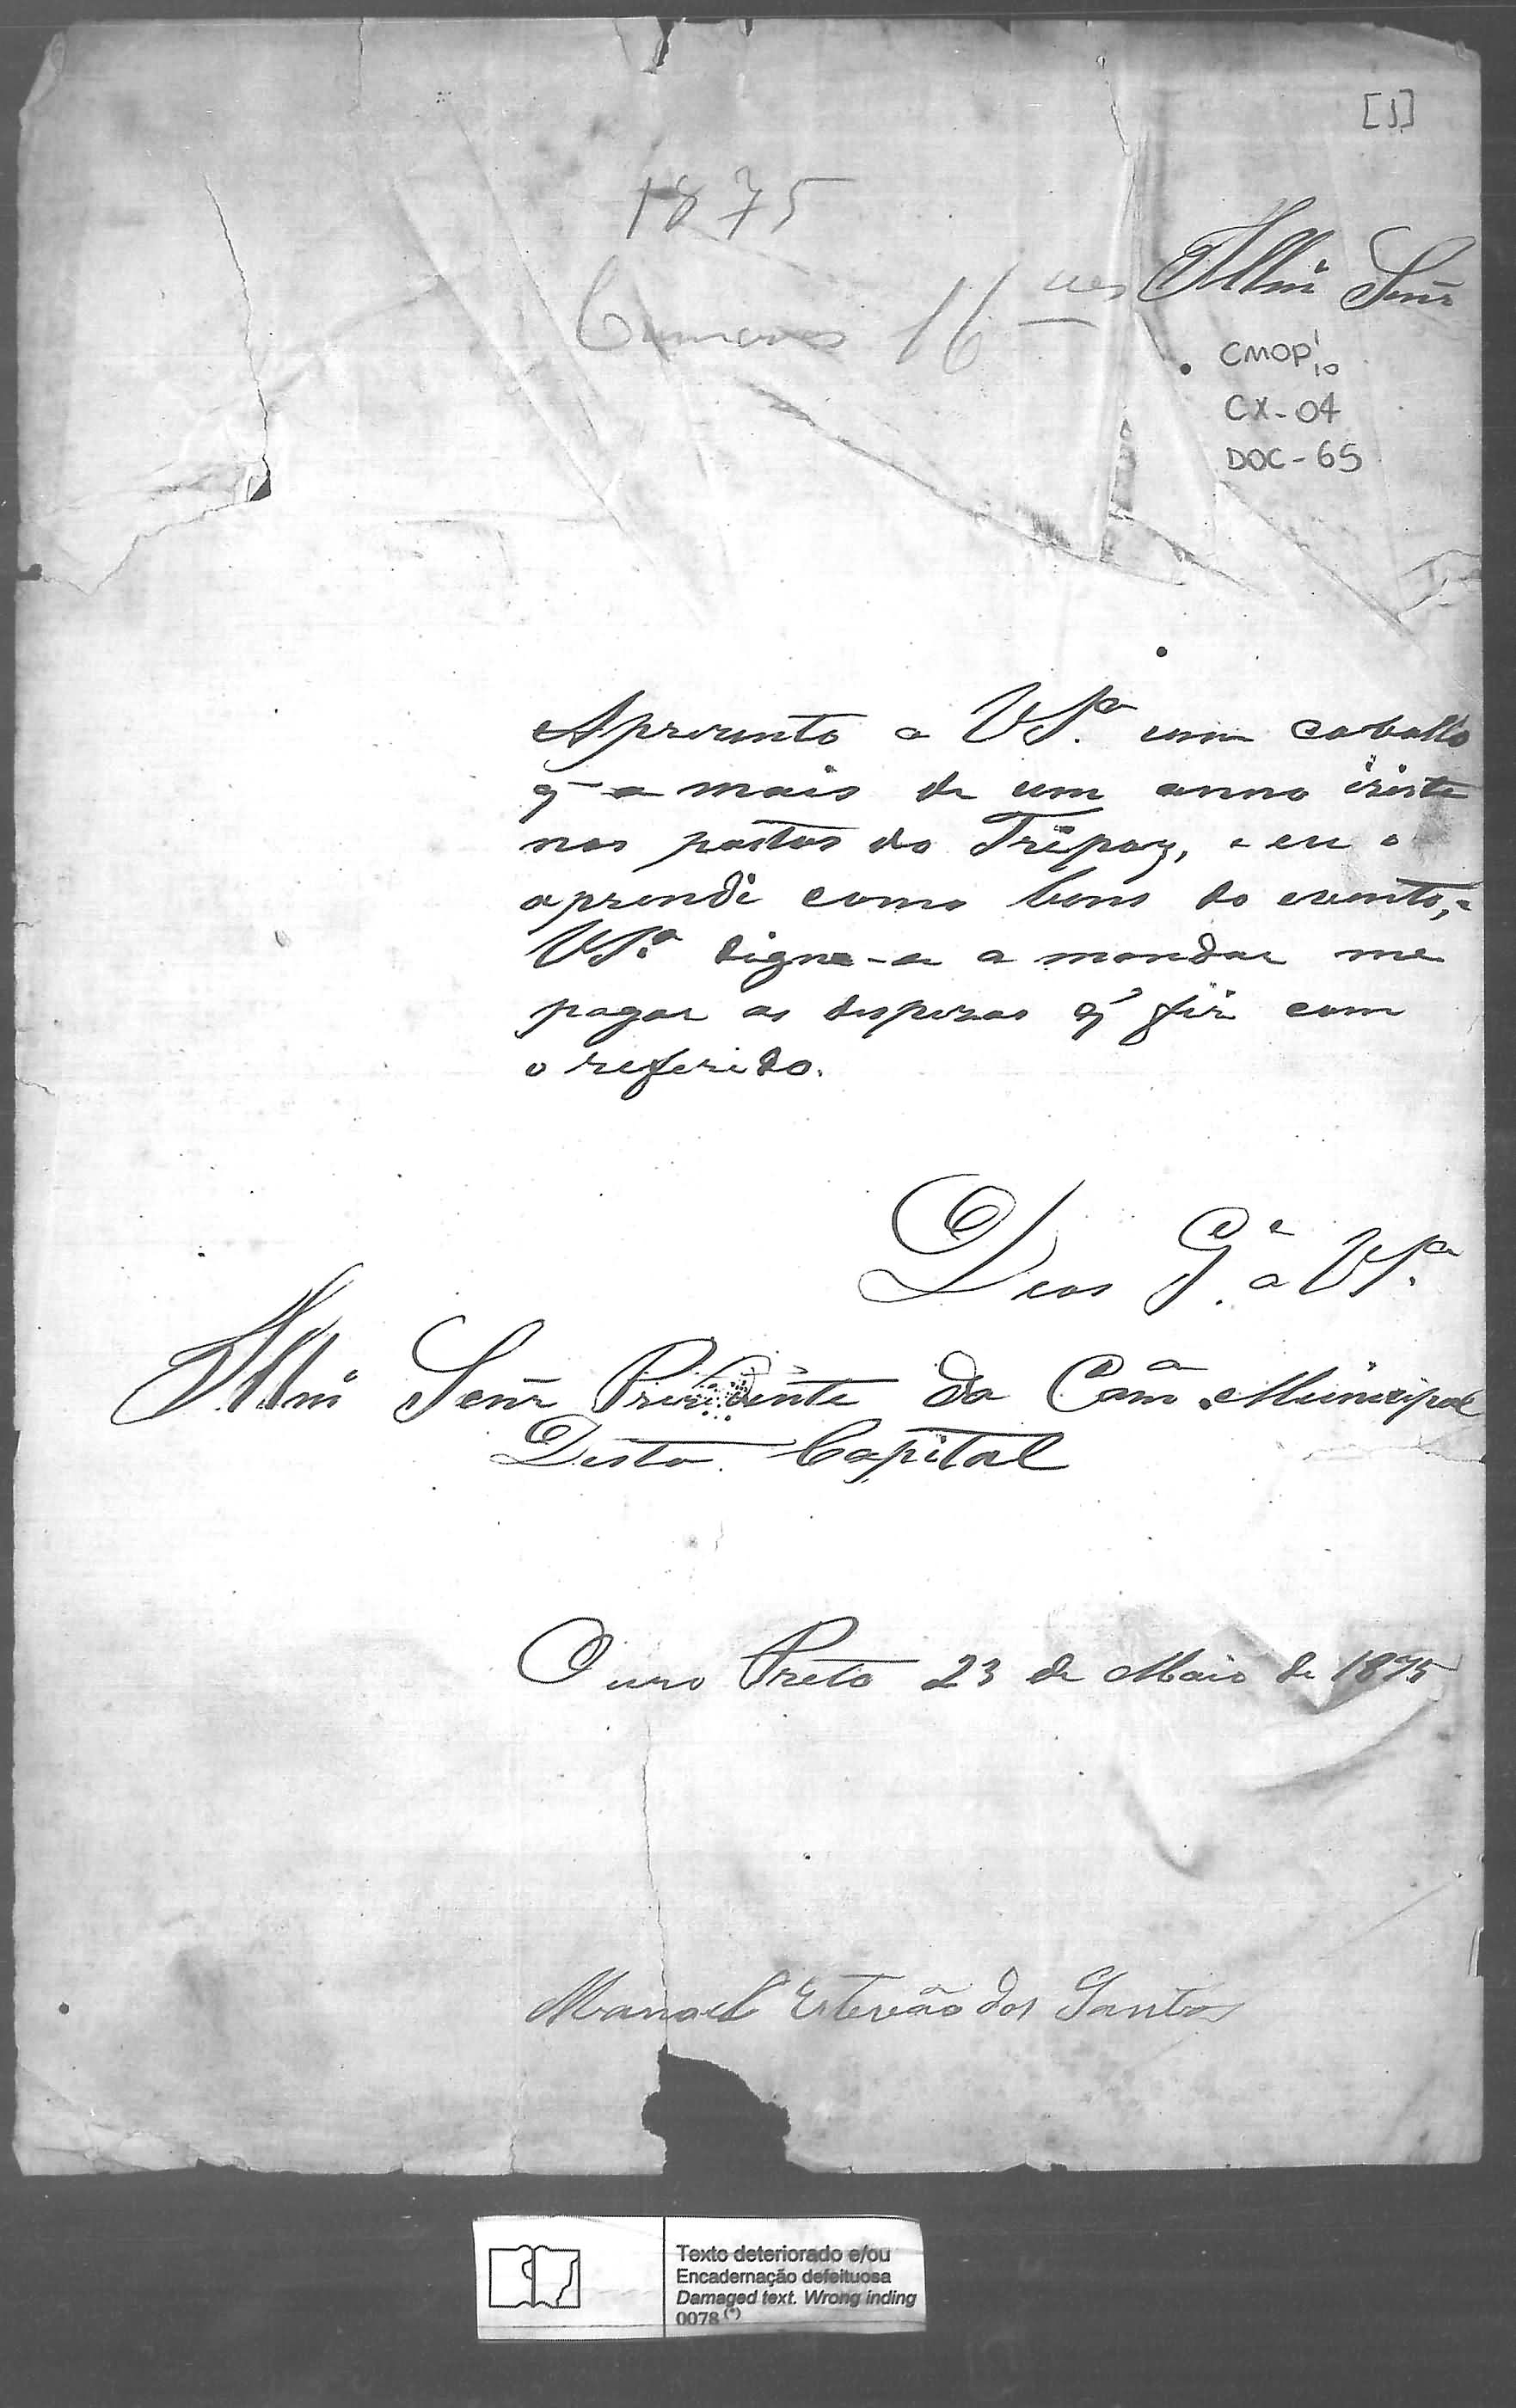 [1]
1875
Illmº Senr
CMOP 1/10
CX-04
DOC-65
Aprezento a VSª um cavallo
q a mais de um anno iziste
nos pastos do Tripoy, e eu o
aprendi como bens do evento, e
VSª digne-se a mandar me
pagar as despezas q̃ fiz com
o referido.
Deos Gᵉ a VSª
Illmº Senr Prezidente da Camª Municipal
Desta Capital
Ouro Preto 23 de Maio de 1875
Manoel Estevão dos Santos
Texto deteriorado e/ou
Encadernação defeituosa
Damaged text. Wrong inding
0078 (*)